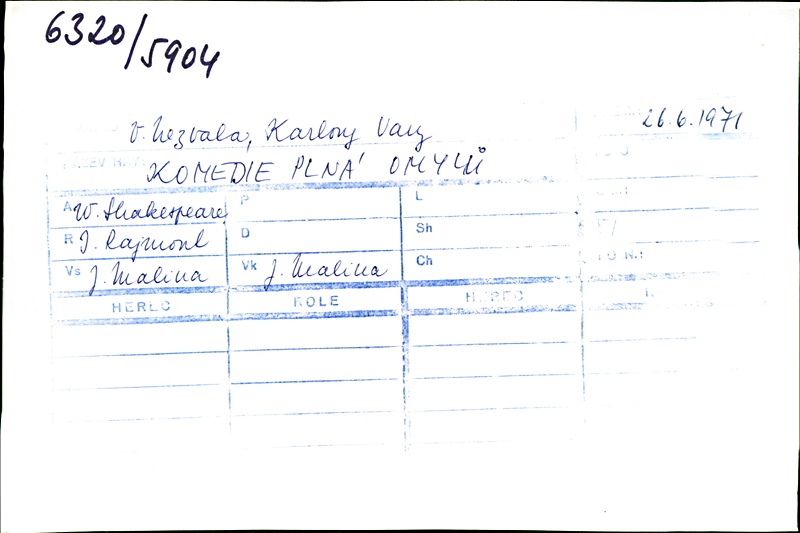 6320/5904
V. Nezvala, Karlovy Vary 26.6.1971
KOMEDIE PLNÁ OMYLŮ
A W. Shakespeare P L
R I. Rajmont D Sh
Vs J. Malina Vk J. Malina Ch
HEREC ROLE HEREC